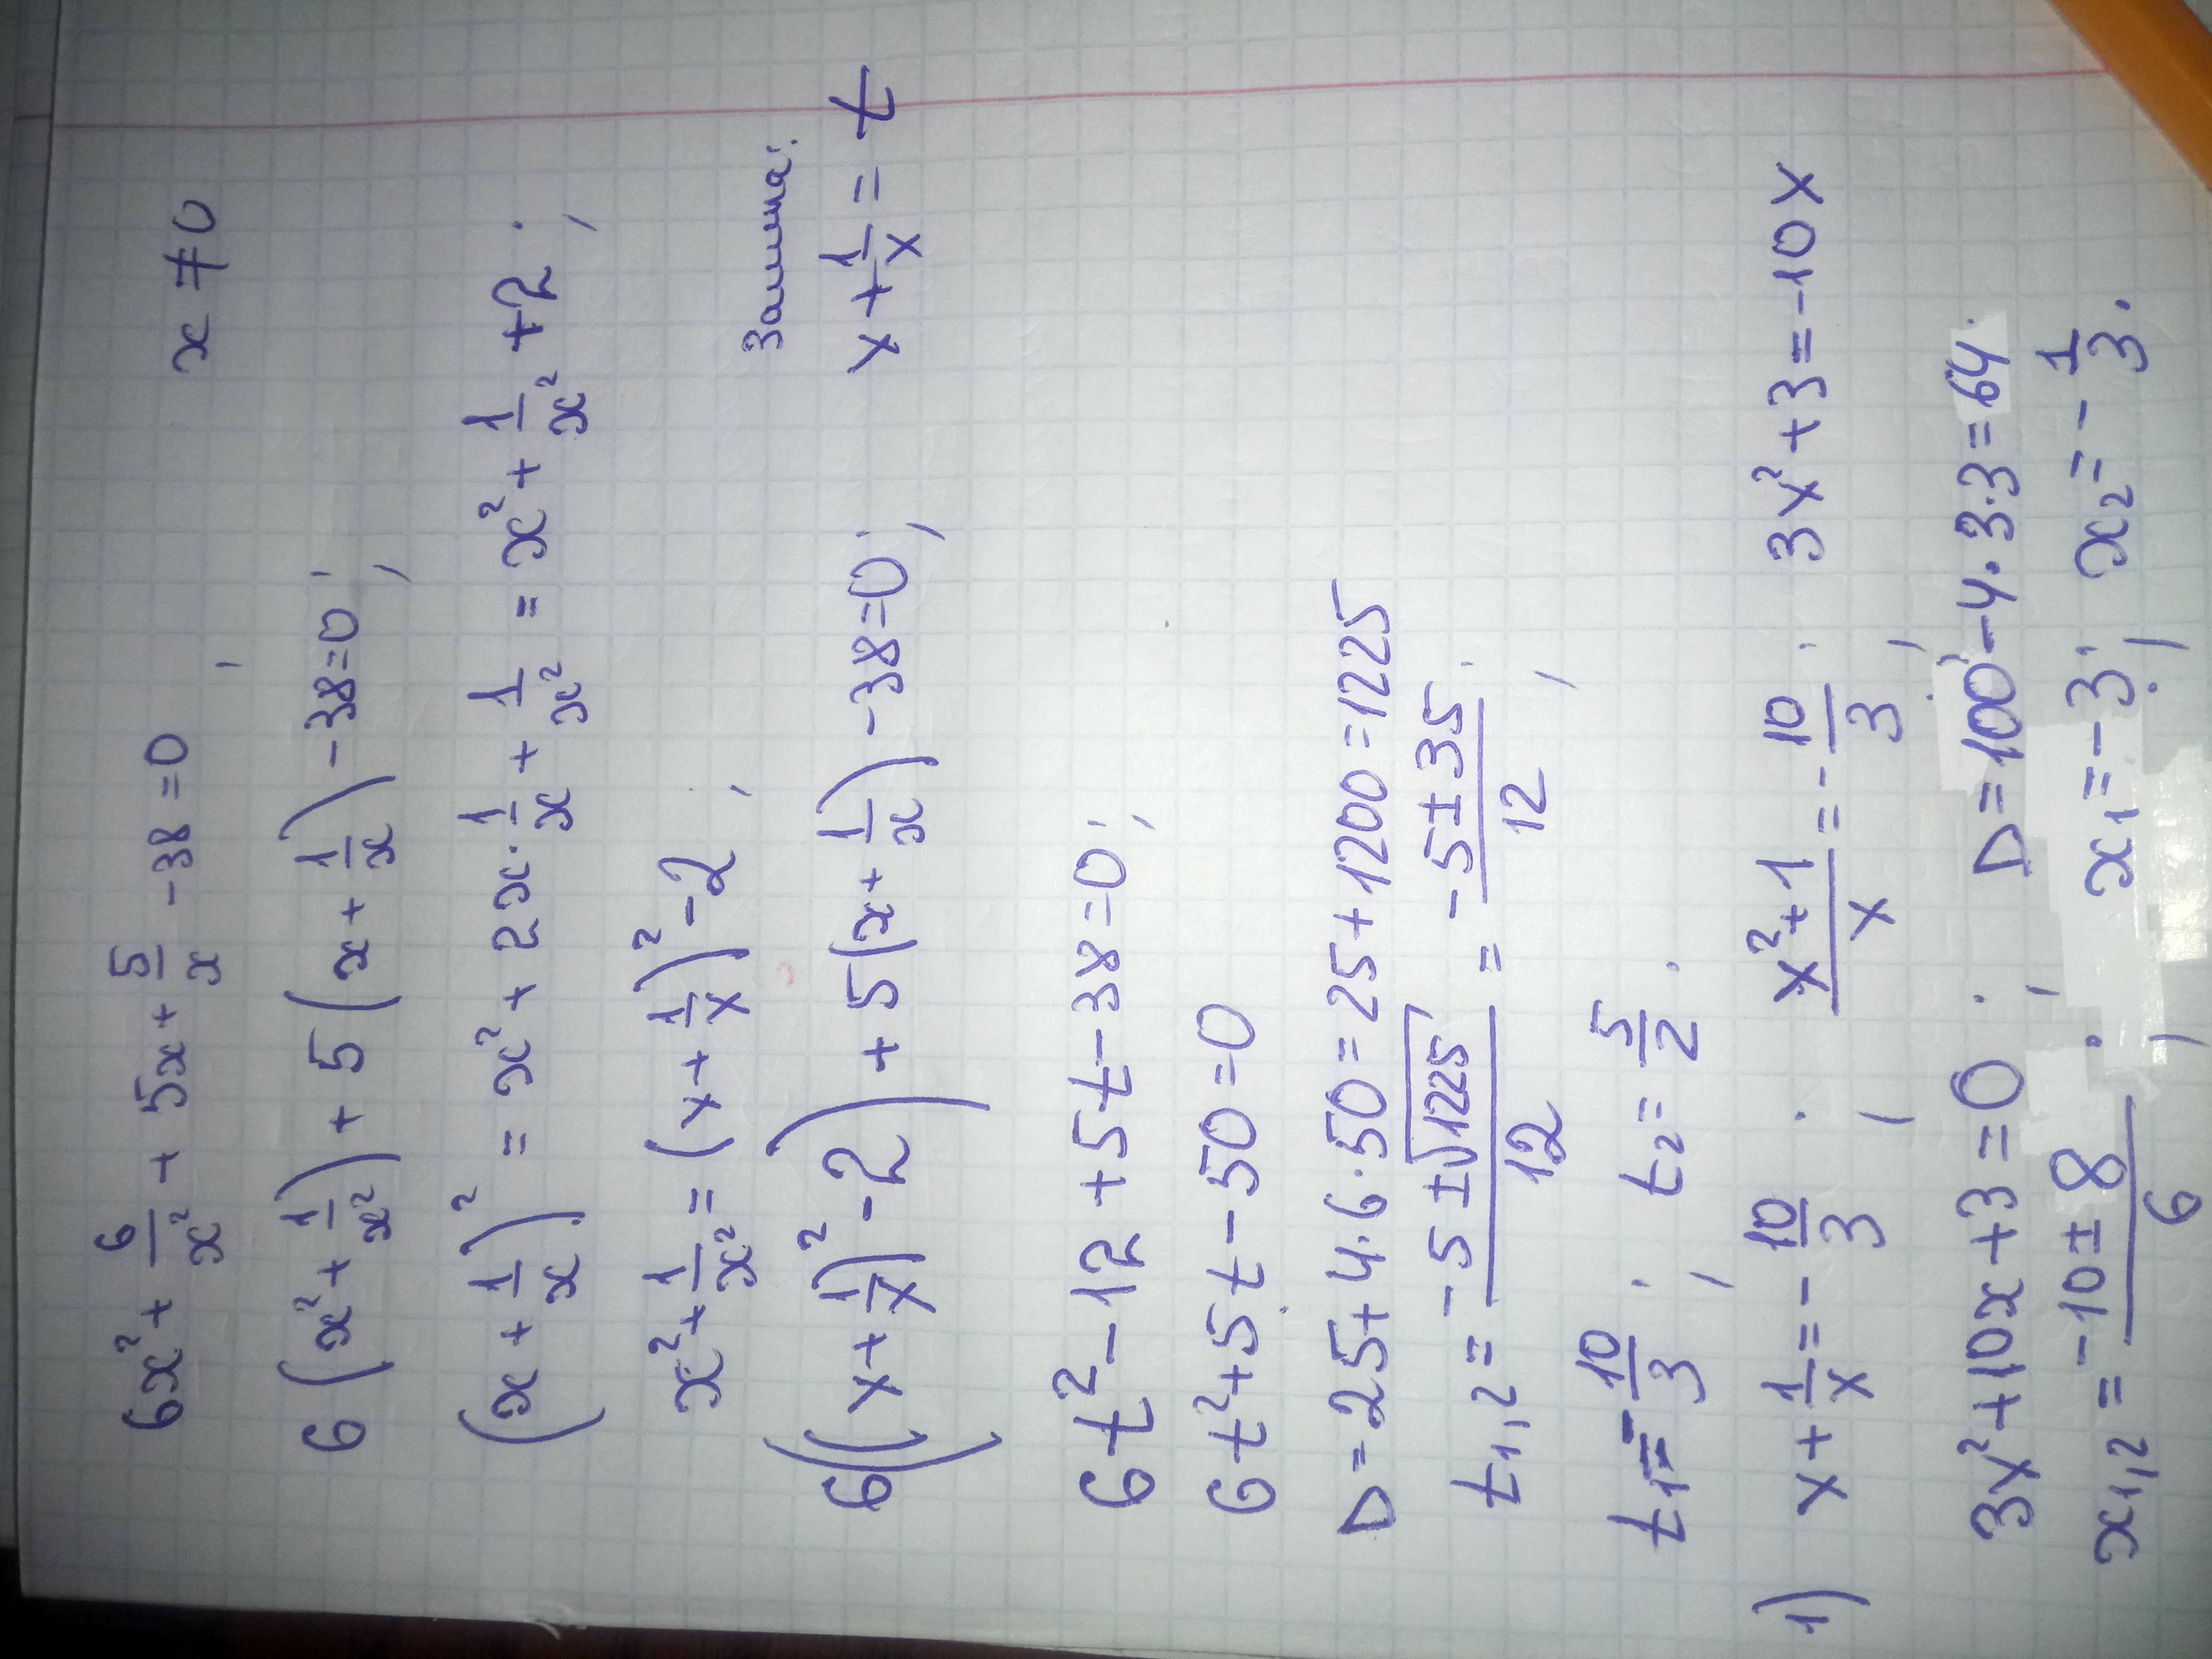 6x² + 6/x² + 5x + 5/x - 38 = 0 ; x ≠ 0
6(x² + 1/x²) + 5(x + 1/x) - 38 = 0 ;
(x + 1/x)² = x² + 2x · 1/x + 1/x² = x² + 1/x² + 2 ;
x² + 1/x² = (x + 1/x)² - 2 ;
Замена:
6((x + 1/x)² - 2) + 5(x + 1/x) - 38 = 0 ; x + 1/x = t
6t² - 12 + 5t - 38 = 0 ;
6t² + 5t - 50 = 0
D = 25 + 4 · 6 · 50 = 25 + 1200 = 1225
t₁,₂ = (-5 ± √1225)/12 = (-5 ± 35)/12 ;
t₁ = -10/3 ; t₂ = 5/2 .
1) x + 1/x = -10/3 ; (x² + 1)/x = -10/3 ; 3x² + 3 = -10x
3x² + 10x + 3 = 0 ; D = 100 - 4 · 3 · 3 = 64.
x₁,₂ = (-10 ± 8)/6 ; x₁ = -3 ; x₂ = -1/3 .